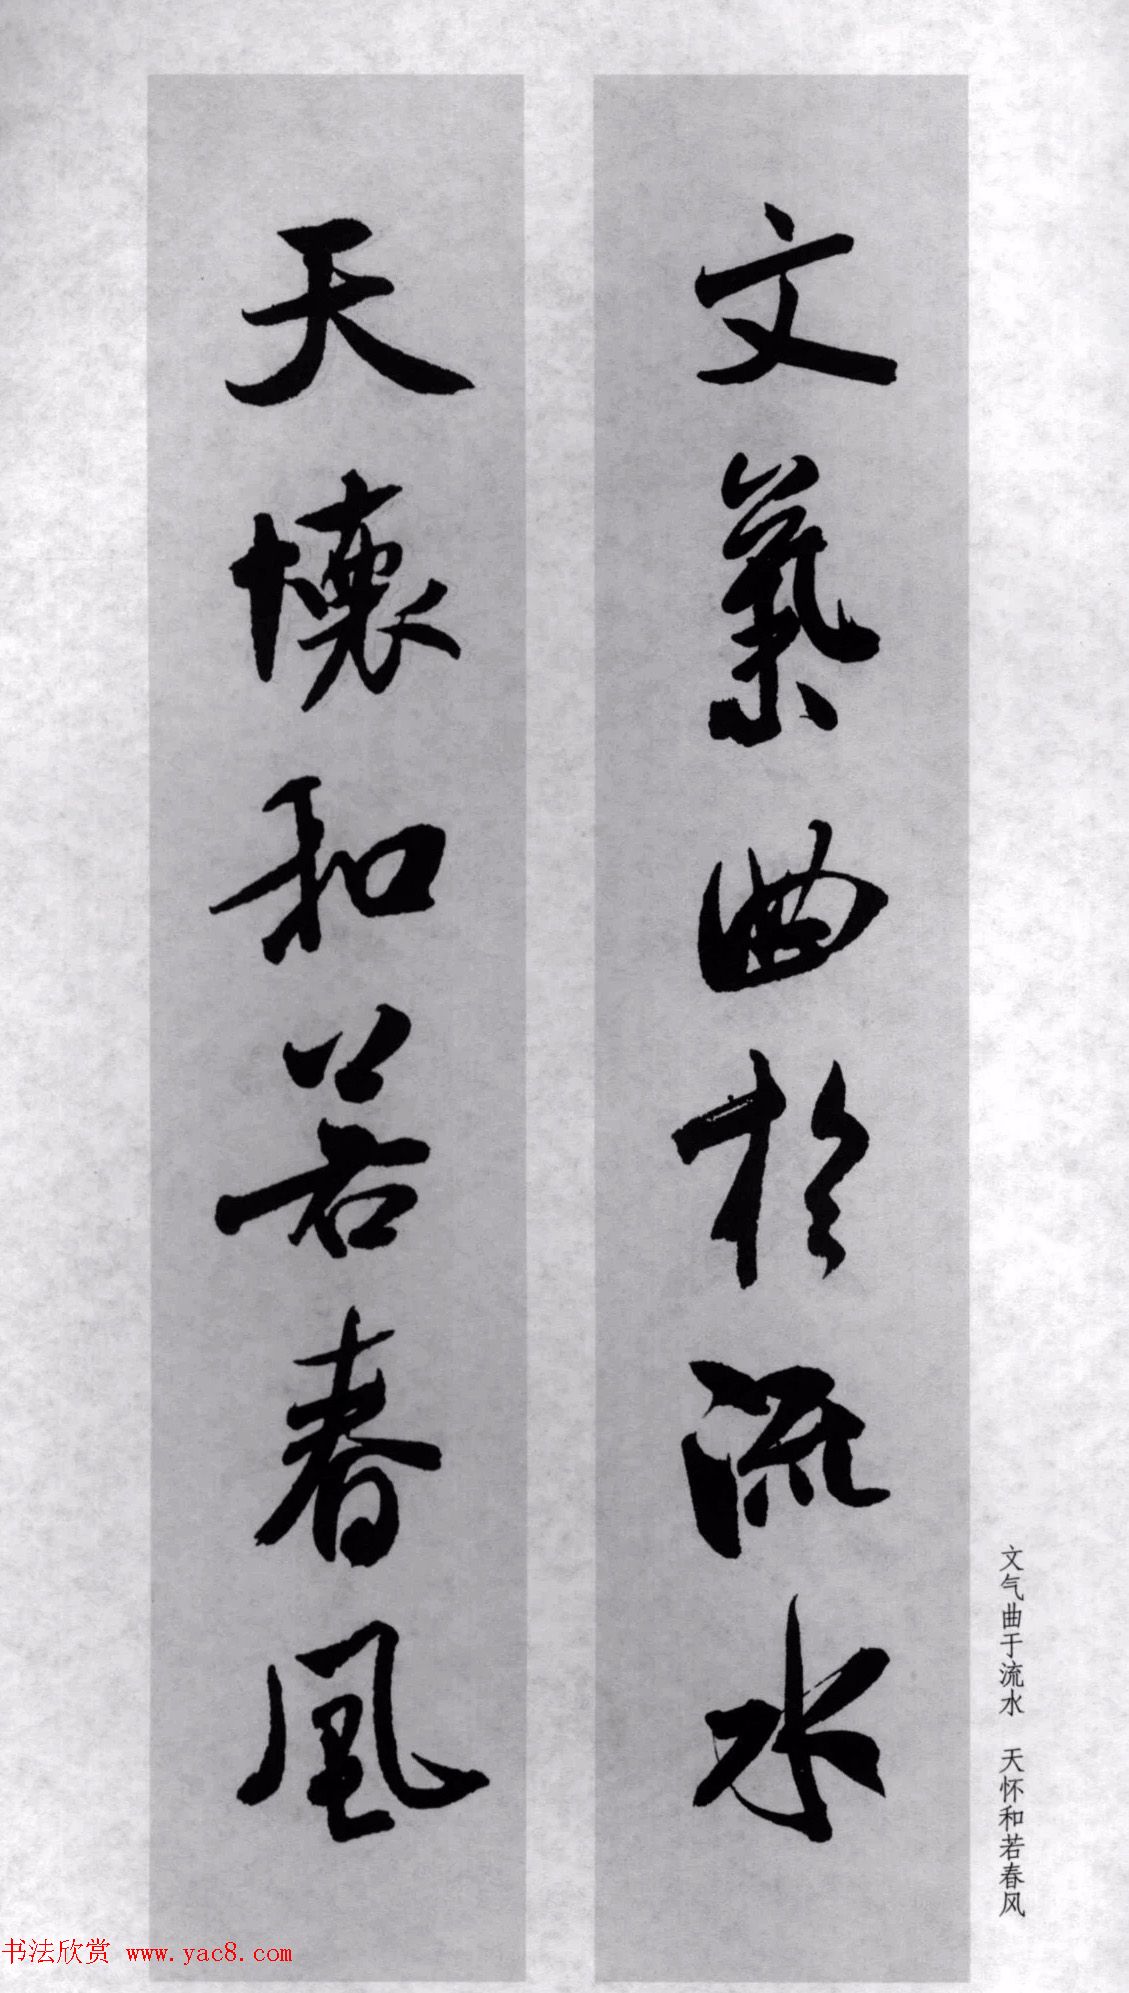 文氣曲於流水
天懷和若春風
文气曲于流水 天怀和若春风
书法欣赏 www.yac8.com